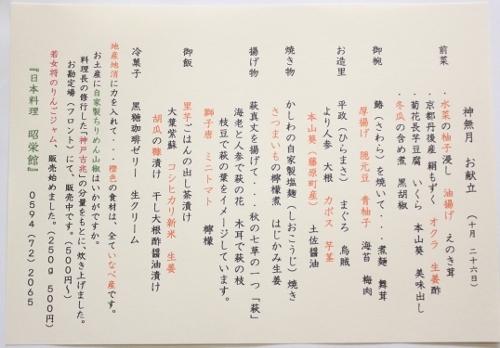 神無月 お献立 (十月 二十六日)
前菜
・水菜の柚子浸し 油揚げ えのき茸
・京都丹後産 絹もずく オクラ 生姜酢
・菊花長芋豆腐 いくら 本山葵 美味出し
・冬瓜の含め煮 黒胡椒
御椀
鰆(さわら)を焼いて・・・煮麺 舞茸
厚揚げ 隠元豆 青柚子 海苔 梅肉
お造里
平政(ひらまさ) まぐろ 烏賊
より人参 大根 カボス 芋茎
本山葵(藤原町産) 土佐醤油
焼き物
かしわの自家製塩麹(しおこうじ)焼き
さつまいもの檸檬煮 はじかみ生姜
揚げ物
萩真丈を揚げて・・・秋の七草の一つ「萩」
海老と人参で萩の花 木耳で萩の枝
枝豆で萩の葉をイメージしています。
獅子唐 ミニトマト 檸檬
御飯
里芋ごはんの出し茶漬け
大葉紫蘇 コシヒカリ新米 生姜
胡瓜の糠漬け 干し大根酢醤油漬け
冷菓子 黒糖珈琲ゼリー 生クリーム
地産地消に力を入れて・・・橙色の食材は、全ていなべ産です。
お土産に自家製ちりめん山椒はいかがですか。
料理長の修行した「神戸吉兆」の分量をもとに、炊き上げました。
お勘定場(フロント)にて、販売中です。(500円~)
若女将のりんごジャム、販売始めました。(250g 500円)
『日本料理 昭栄館』 0594(72)2065